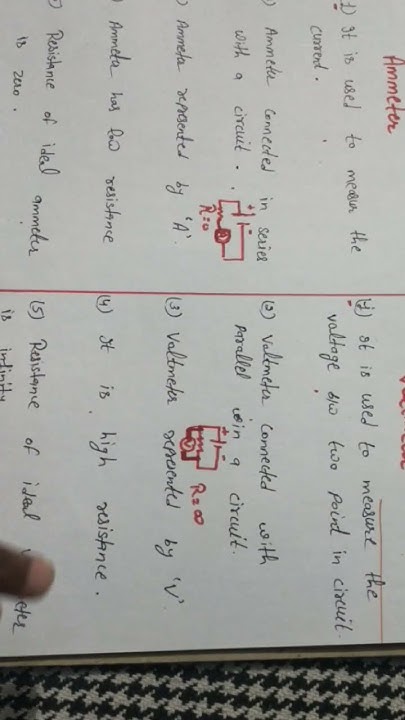 Ammeter
1) It is used to measure the
current.
2) Ammeter connected in series
with a circuit.
R=0
) Ammeter represented by 'A'.
) Ammeter has low resistance
) Resistance of ideal ammeter
is zero.
1) It is used to measure the
voltage b/w two point in circuit.
(2) Voltmeter connected with
parallel in a circuit.
R=∞
(3) Voltmeter represented by 'V'.
(4) It is high resistance.
(5) Resistance of ideal
is infinity